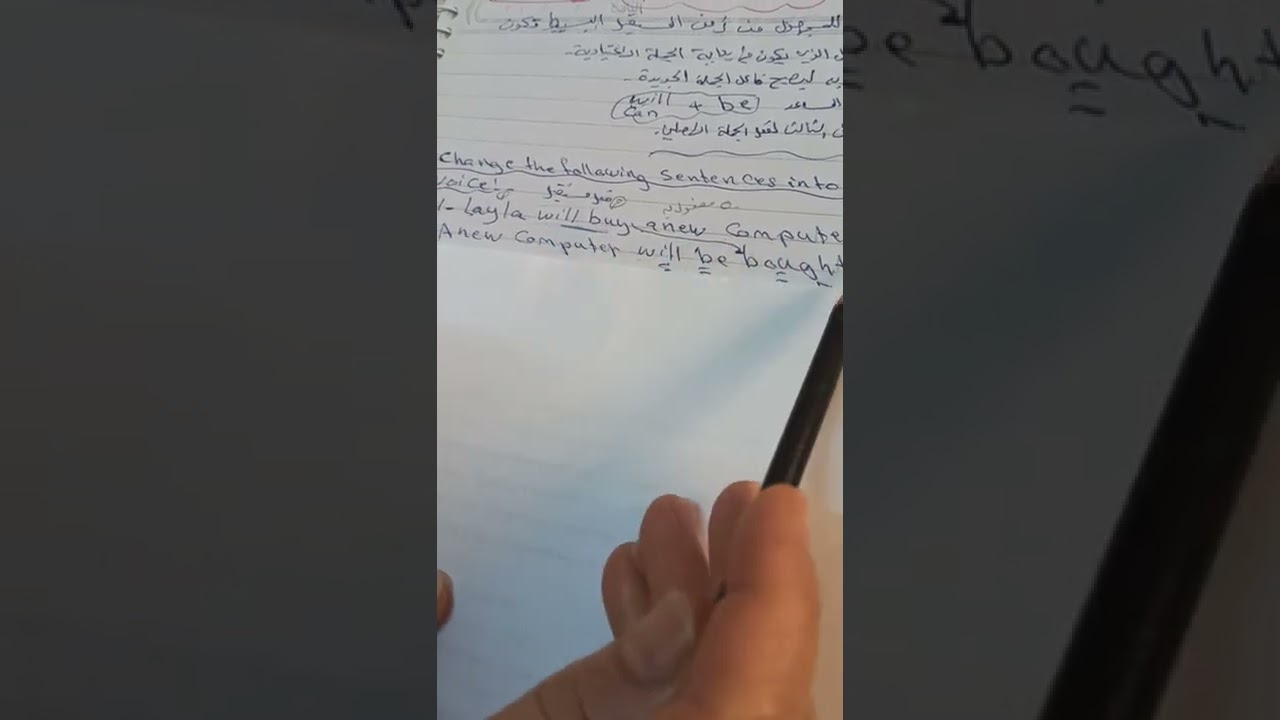 للمجهول من زمن المستقبل البسيط وتكون
الذي يكون في بداية الجملة الاعتيادية.
به ليصبح فاعل الجملة الجديدة.
المساعد will + be
can
الثالث لفعل الجملة الأصلي.
Change the following sentences into
voice:
مفعول به
1- Layla will buy a new Compute
A new Computer will be bought
be bought